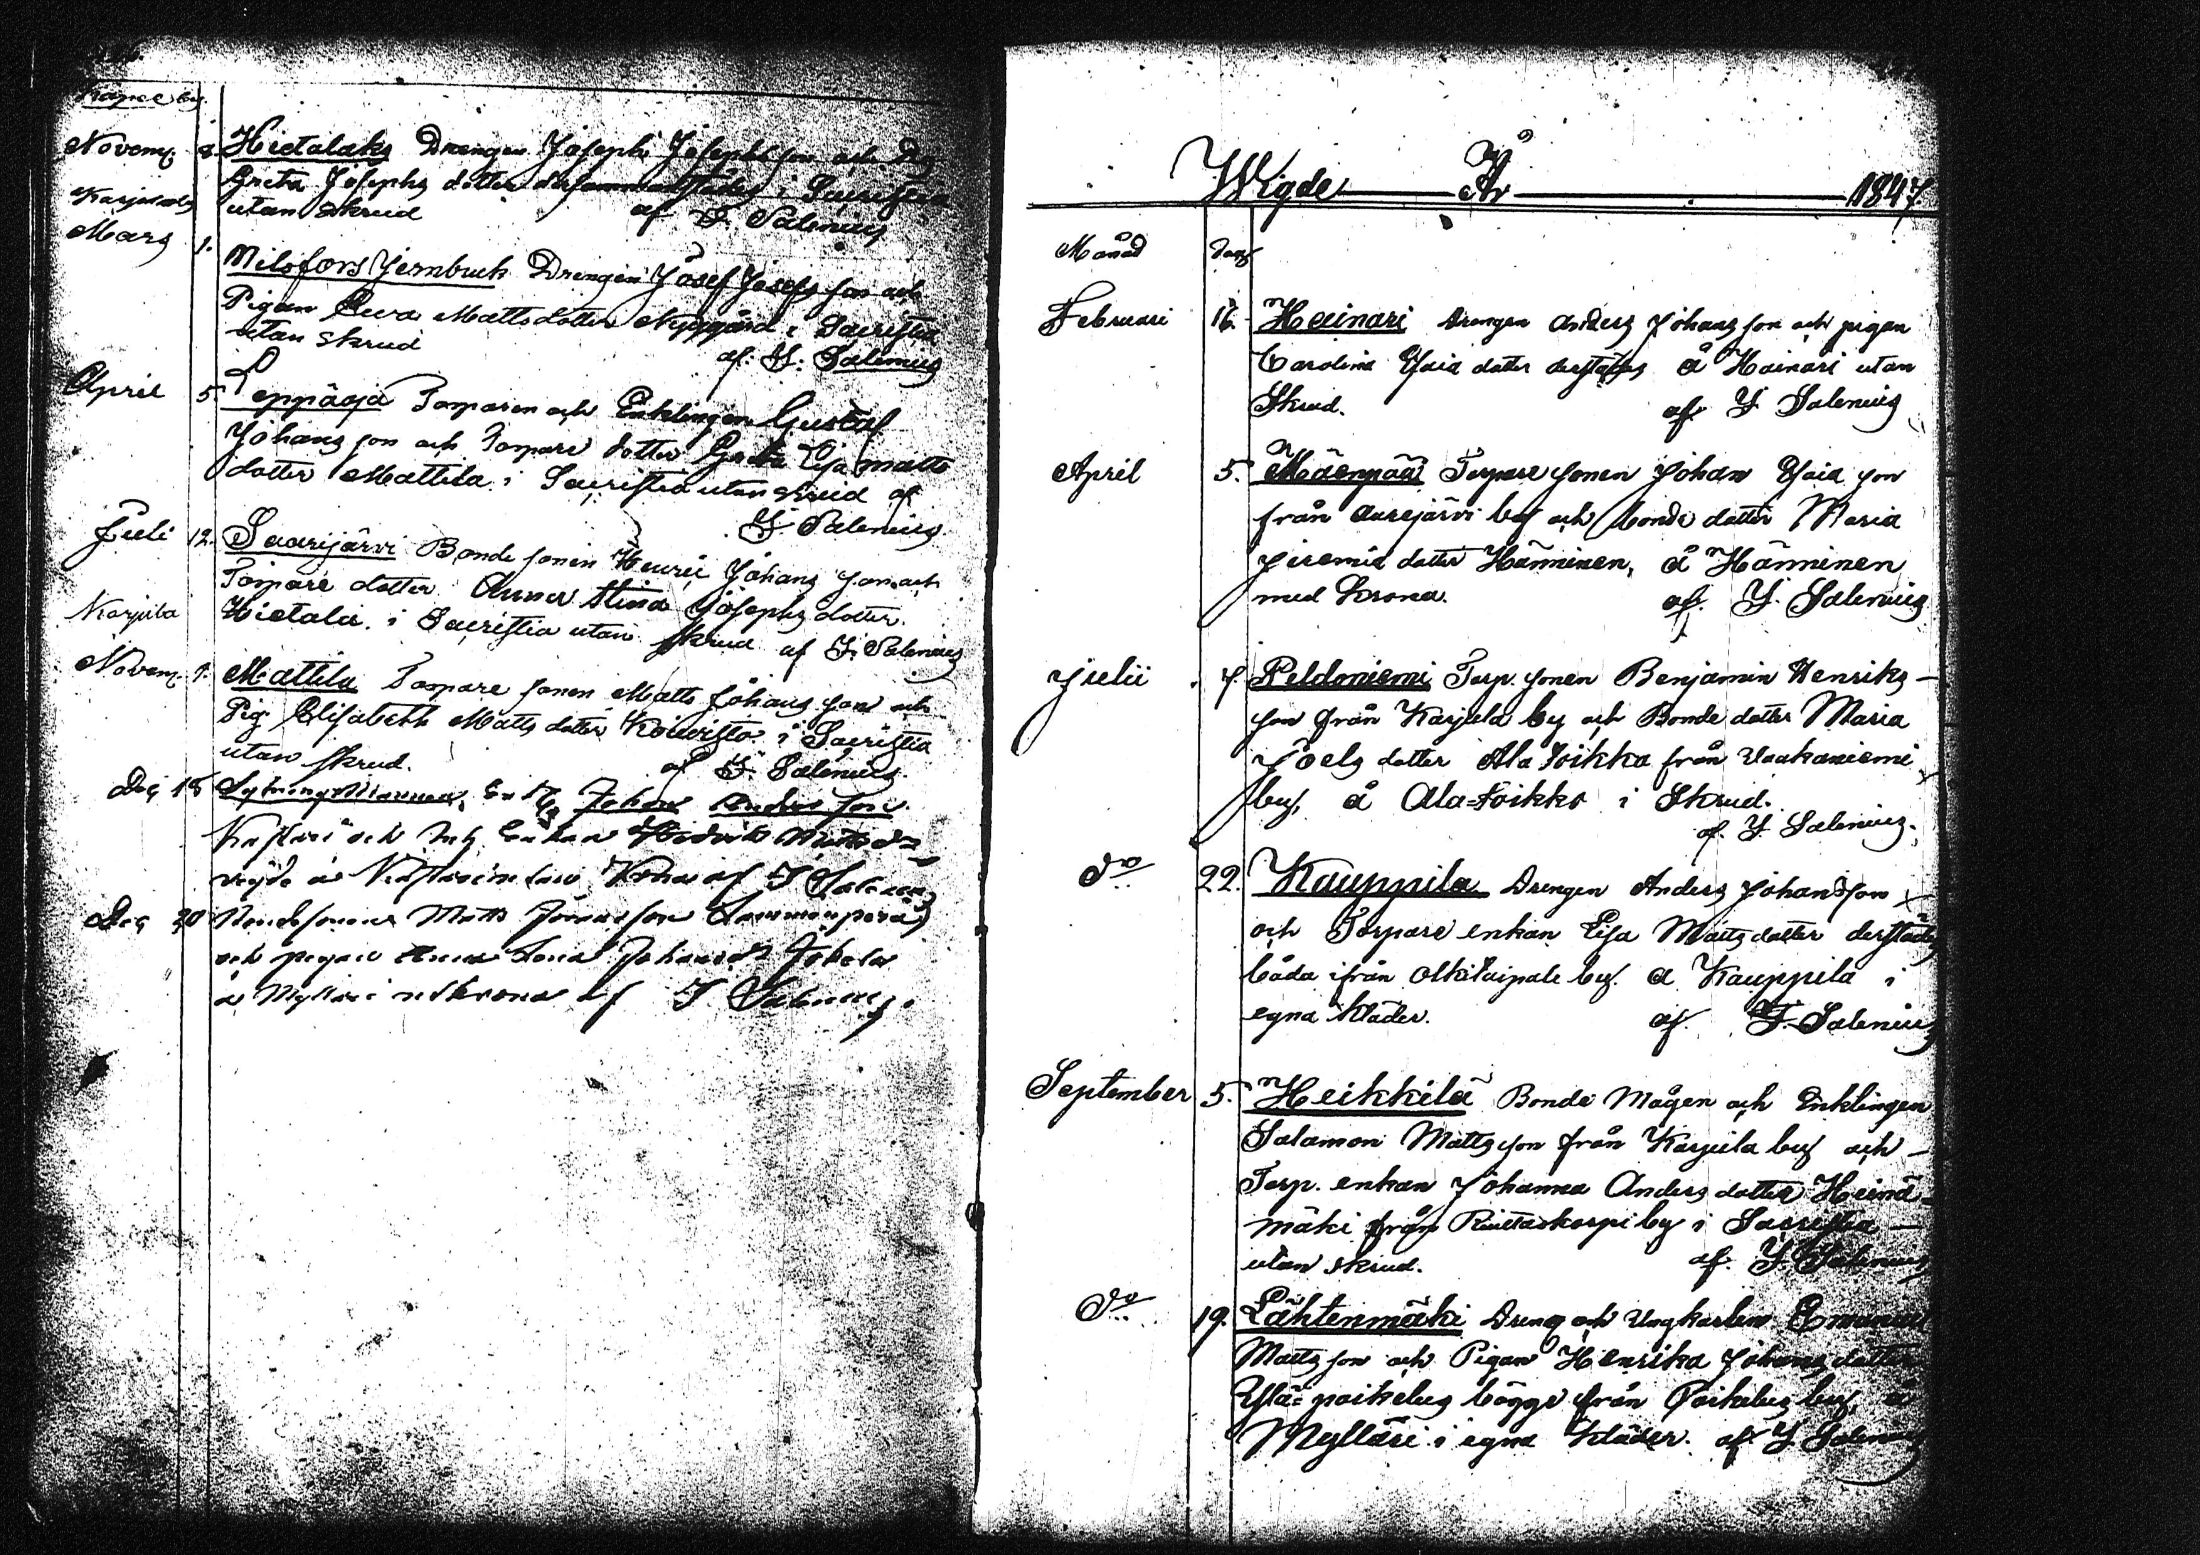 Kapel by.
Novem. 8. Hietalaks Drengen Joseph Josephsson och Pig.
Greta Josephs dotter dersammastädes i Sacristia
utan Skrud af I. Salenius
Karjula by
Mars 1. Nilsfors Jernbruk Drengen Josef Josefs son och
Pigan Eva Matts dotter Nygård i Sacristia
utan skrud af. I. Salenius
April 5 Leppäoja Torparen och Enklingen Gustaf
Johans son och Torpare dotter Greta Lisa Matts
dotter Mattila i Sacristia utan skrud af
I. Salenius
Juli 12. Saarijärvi Bonde sonen Henric Johans son och
Torpare dotter Anna Stina Josephs dotter
Hietala. i Sacristia utan skrud af I. Salenius
Karjula
Novem. 1. Mattila Torpare sonen Matts Johans son och
Pig. Elisabeth Matts dotter Koivisto i Sacristia
utan skrud. af I. Salenius.
Dec 18 Johan Anders son
och Enkan Matts dr
Krona af I Salenius
Dec 30 Bondesonen Matts son Lammenperä
och pigan Anna Lena Johansdr Jokela
å Myllari Krona af I Salenius.
Wigde År 1847.
Månad Dag
Februari 16. Hainari Drengen Anders Johans son och pigan
Carolina Isaia dotter derstädes å Hainari utan
Skrud. af I Salenius
April 5. Mäenpää Torpare sonen Johan Isaia son
från Aurejärvi by och bonde dotter Maria
Jeremia dotter Hänninen, å Hänninen
med Krona. af. I. Salenius
Julii 4. Peldoniemi Torp. sonen Benjamin Henriks-
son från Karjula by och Bonde dotter Maria
Joels dotter Ala Toikko från Vaakaniemi
by, å Ala=Toikko i Skrud.
af. I Salenius.
do 22. Kauppila Drengen Anders Johans son
och Torpare enkan Lisa Matts dotter derstädes
båda ifrån Olkitaipale by. å Kauppila i
egna kläder. af. I. Salenius
September 5. Heikkilä Bonde Mågen och Enklingen
Salamon Matts son från Karjula by och -
Torp. enkan Johanna Anders dotter Heinä=
mäki från Riuttaskorpi by i Sacristia -
utan skrud. af. I. Salenius
do 19. Lähtenmäki Dreng och Ungkarlen Emanuel
Matts son och Pigan Henrika Johans dotter
Ylä=poikelus bägge från Poikelus by, å
Mylläri i egna kläder. af I Salenius